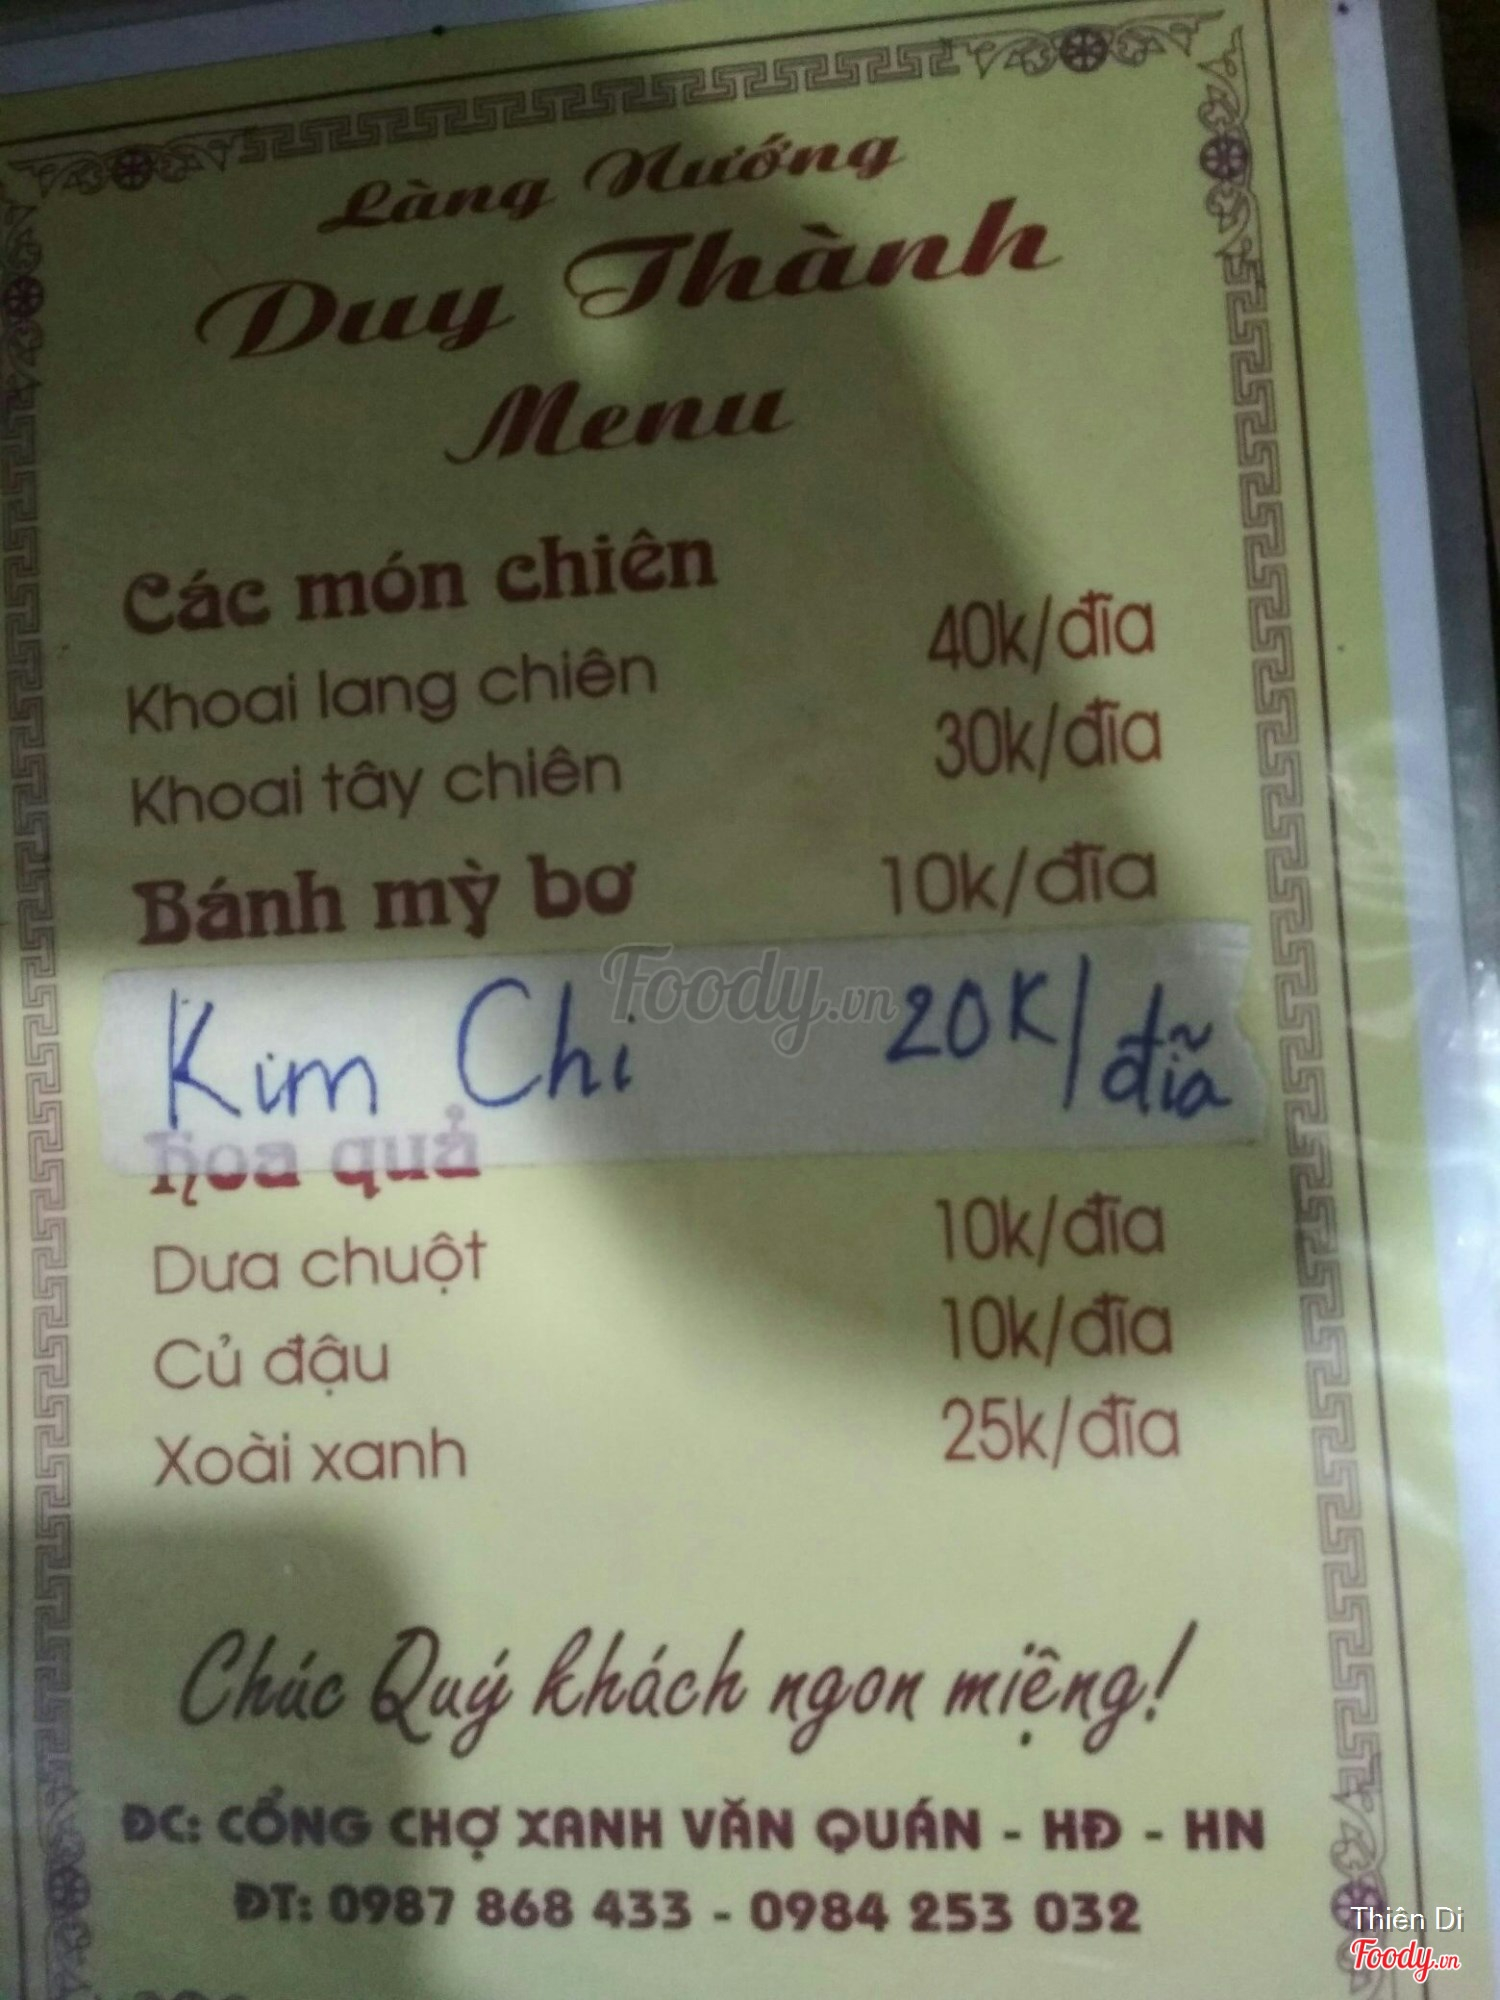 Làng Nướng
Duy Thành
Menu
Các món chiên
Khoai lang chiên 40k/đĩa
Khoai tây chiên 30k/đĩa
Bánh mỳ bơ 10k/đĩa
Foody.vn
Kim Chi 20K/đĩa
Hoa quả
Dưa chuột 10k/đĩa
Củ đậu 10k/đĩa
Xoài xanh 25k/đĩa
Chúc Quý khách ngon miệng!
ĐC: CỔNG CHỢ XANH VĂN QUÁN - HĐ - HN
ĐT: 0987 868 433 - 0984 253 032
Thiên Di
Foody.vn